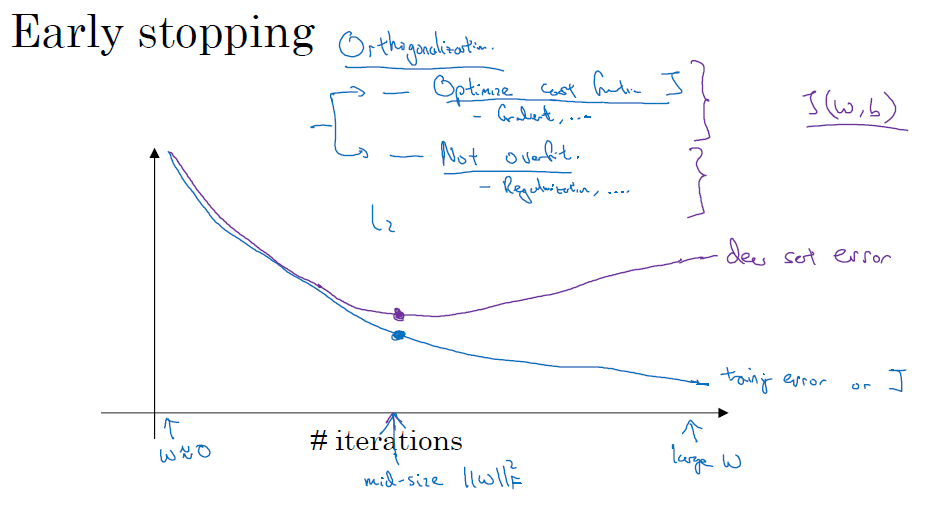 Early stopping
Orthogonalization.
— Optimize cost function J
- Gradient, ....
J(w,b)
— Not overfit.
- Regularization, ....
L2
dev set error
training error or J
w≈0
# iterations
large w
mid-size ||w||²F